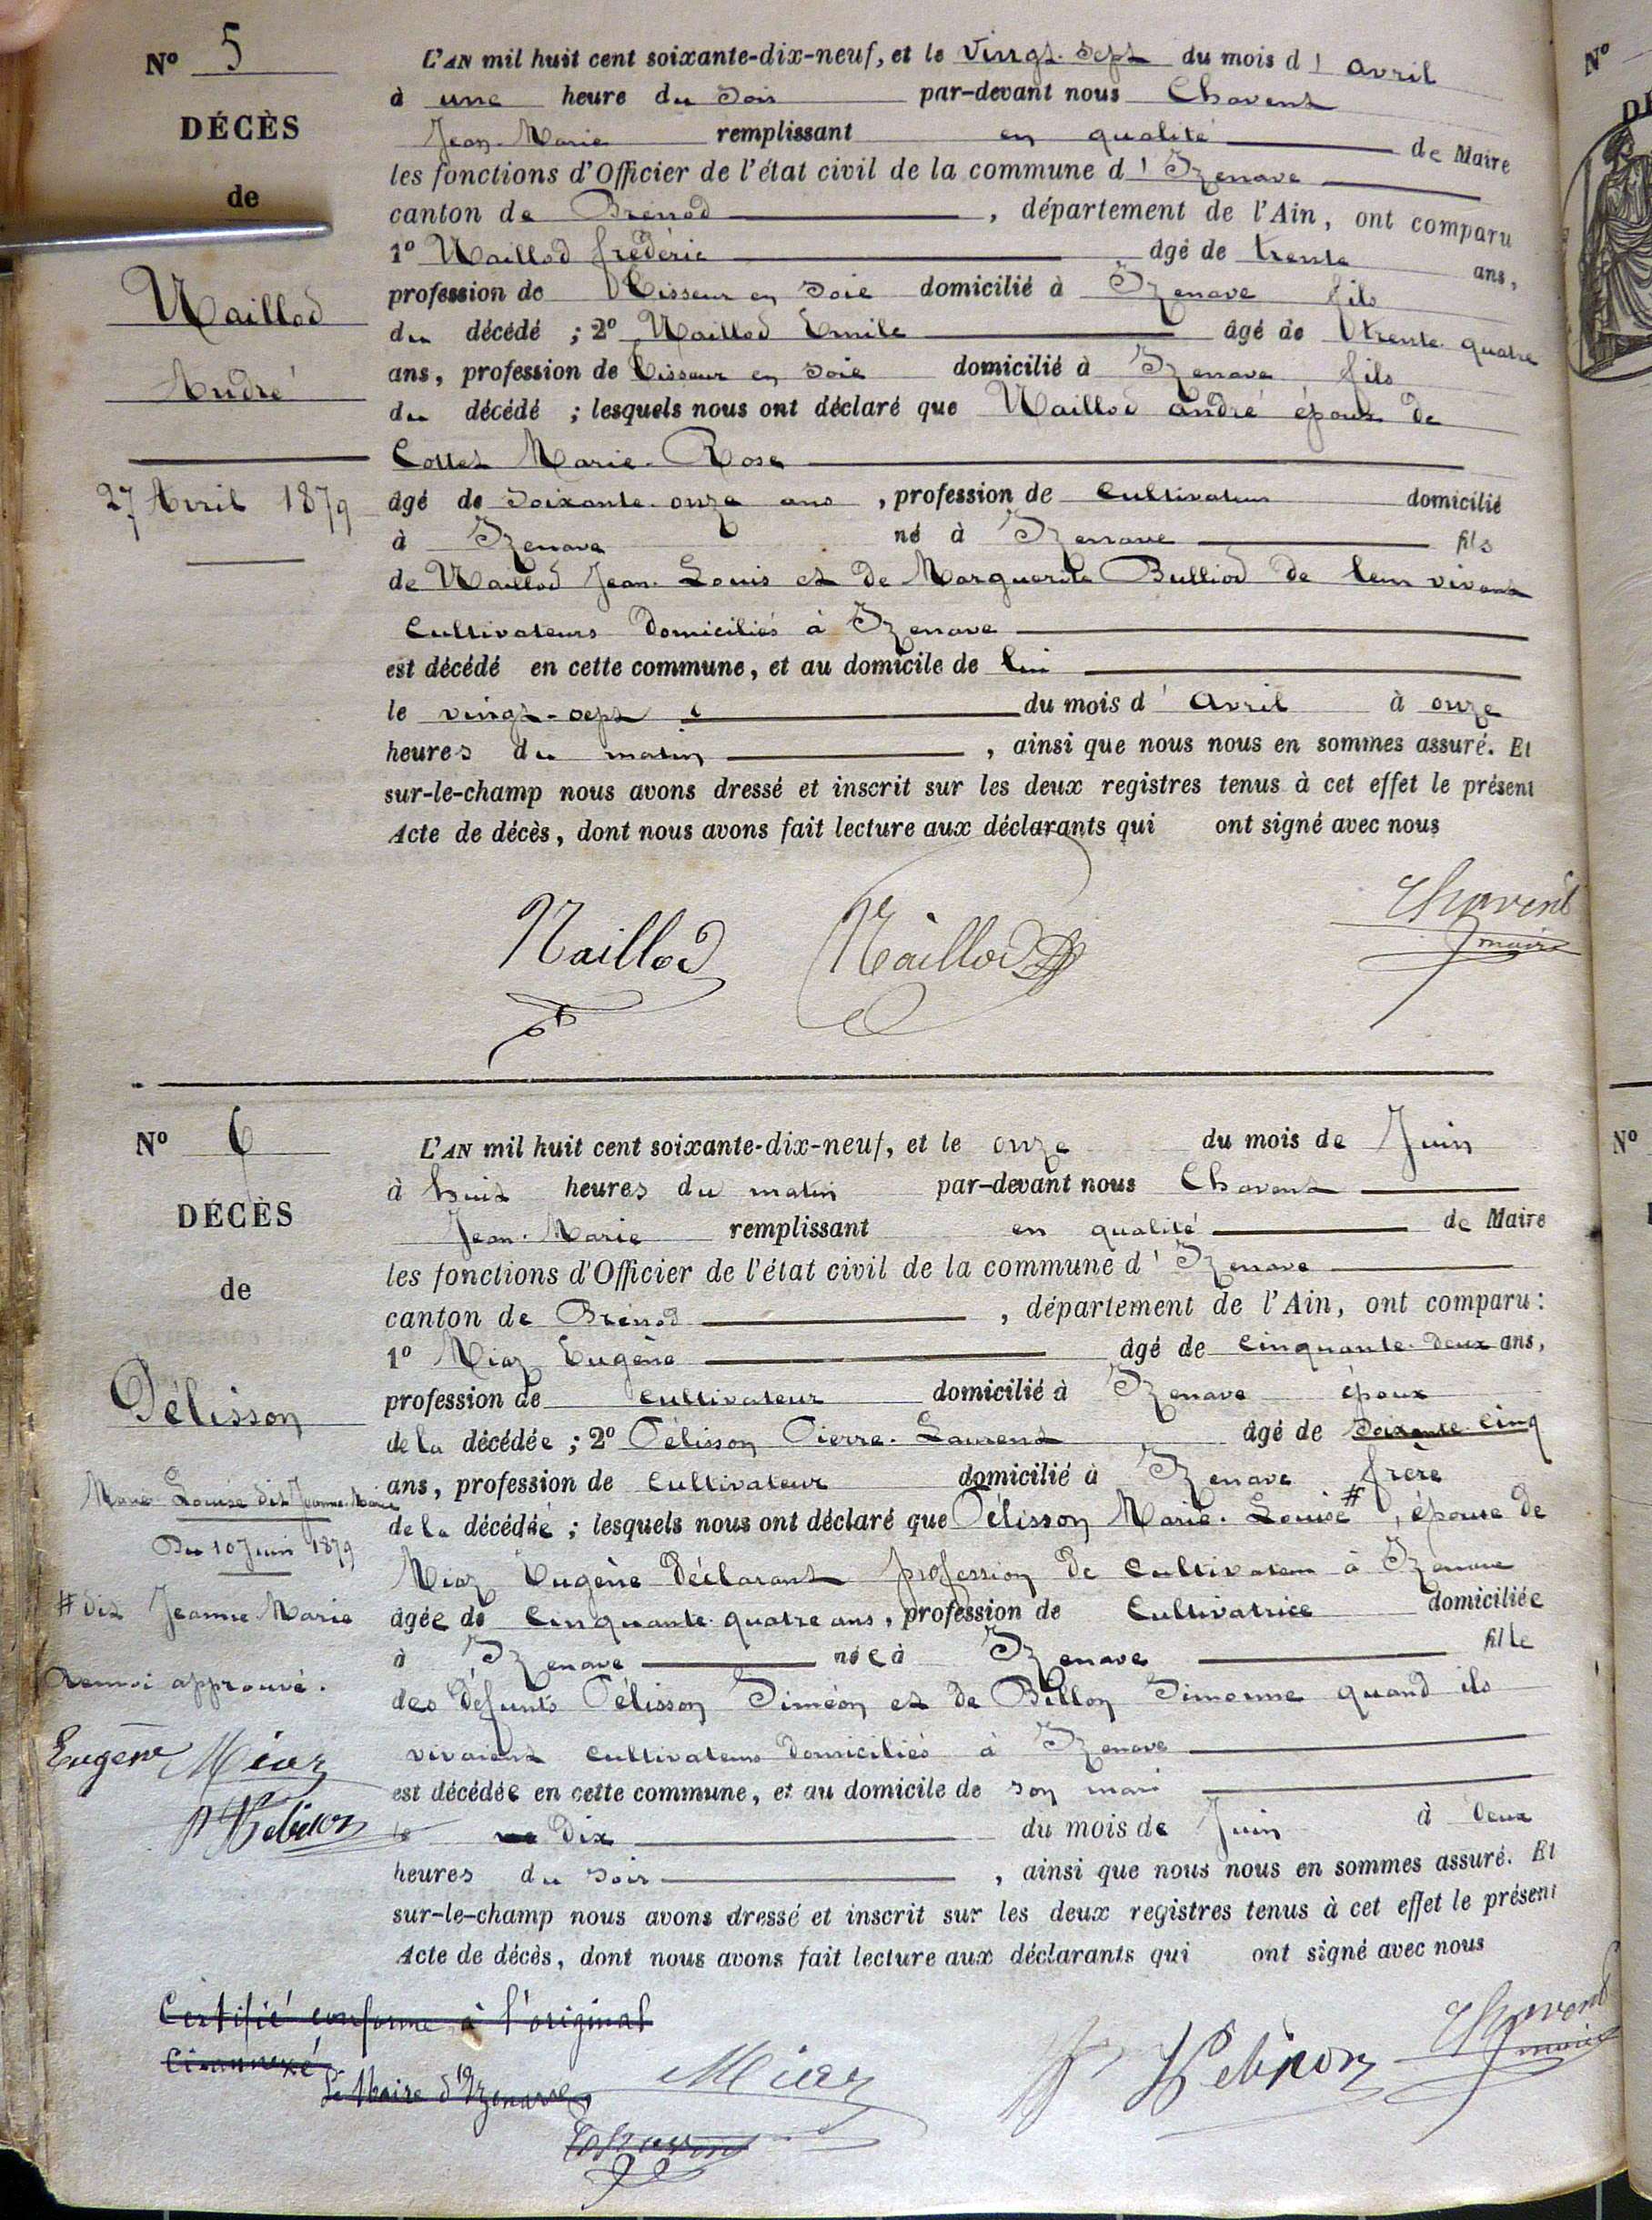 N° 5
DÉCÈS
de
Maillod
André
27 Avril 1879
L'AN mil huit cent soixante-dix-neuf, et le vingt-sept du mois d' avril
à une heure du soir par-devant nous Chavent
Jean-Marie remplissant en qualité de Maire
les fonctions d'Officier de l'état civil de la commune d' Izenave
canton de Brénod, département de l'Ain, ont comparu
1° Maillod frédéric âgé de trente ans,
profession de Tisseur en soie domicilié à Izenave fils
du décédé ; 2° Maillod Emile âgé de trente-quatre
ans, profession de Tisseur en soie domicilié à Izenave fils
du décédé ; lesquels nous ont déclaré que Maillod andré époux de
Collet Marie-Rose
âgé de soixante-onze ans, profession de Cultivateur domicilié
à Izenave né à Izenave fils
de Maillod Jean-Louis et de Marguerite Bulliod de leur vivant
Cultivateurs domiciliés à Izenave
est décédé en cette commune, et au domicile de lui
le vingt-sept du mois d' avril à onze
heures du matin, ainsi que nous nous en sommes assuré. Et
sur-le-champ nous avons dressé et inscrit sur les deux registres tenus à cet effet le présent
Acte de décès, dont nous avons fait lecture aux déclarants qui ont signé avec nous
Maillod Maillod Chavent
maire
N° 6
DÉCÈS
de
Pélisson
Marie Louise dit Jeanne-Marie
Du 10 Juin 1879
# dit Jeanne-Marie
Renvoi approuvé.
Eugène Miaz
P Pelisson
L'AN mil huit cent soixante-dix-neuf, et le onze du mois de Juin
à huit heures du matin par-devant nous Chavent
Jean-Marie remplissant en qualité de Maire
les fonctions d'Officier de l'état civil de la commune d' Izenave
canton de Brénod, département de l'Ain, ont comparu :
1° Miaz Eugène âgé de cinquante-deux ans,
profession de cultivateur domicilié à Izenave époux
de la décédée ; 2° Pélisson Pierre-Laurent âgé de soixante-cinq
ans, profession de Cultivateur domicilié à Izenave frère
de la décédée ; lesquels nous ont déclaré que Pélisson Marie-Louise #, épouse de
Miaz Eugène déclarant profession de cultivateur à Izenave
âgée de Cinquante-quatre ans, profession de Cultivatrice domiciliée
à Izenave née à Izenave fille
des défunts Pélisson Siméon et de Billon Simonne quand ils
vivaient cultivateurs domiciliés à Izenave
est décédée en cette commune, et au domicile de son mari
le dix du mois de Juin à deux
heures du soir, ainsi que nous nous en sommes assuré. Et
sur-le-champ nous avons dressé et inscrit sur les deux registres tenus à cet effet le présent
Acte de décès, dont nous avons fait lecture aux déclarants qui ont signé avec nous
Certifié conforme à l'original
Ci-annexé
Le Maire d'Izenave,
Chavent
Miaz P Pelisson Chavent
maire
N°
N°